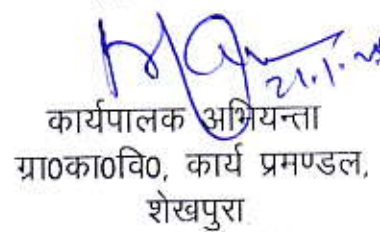 21.1.25
कार्यपालक अभियन्ता
ग्रा0का0वि0, कार्य प्रमण्डल,
शेखपुरा